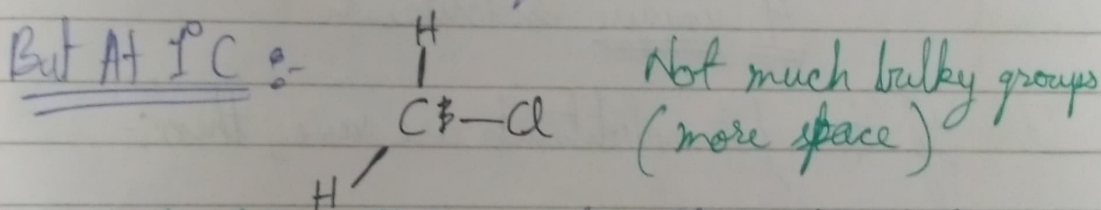 But At 1°C :-
H
C—Cl
H
Not much bulky groups
(more space)